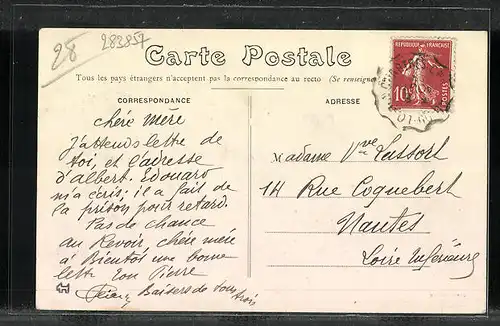 28 283857
Carte Postale
Tous les pays étrangers n'acceptent pas la correspondance au recto (Se renseigner
CORRESPONDANCE
ADRESSE
REPUBLIQUE FRANÇAISE
10
POSTES
chère mère
J'attends lettre de
toi, et l'adresse
d'albert. Edouard
m'a écris; il a fait de
la prison pour retard.
Pas de chance
au Revoir, chère mère
à Bientôt une bonne
lettre ton Pierre
Baisers de tous
trois
Madame Vve Lassort
14 Rue Coquebert
Nantes
Loire Inférieure